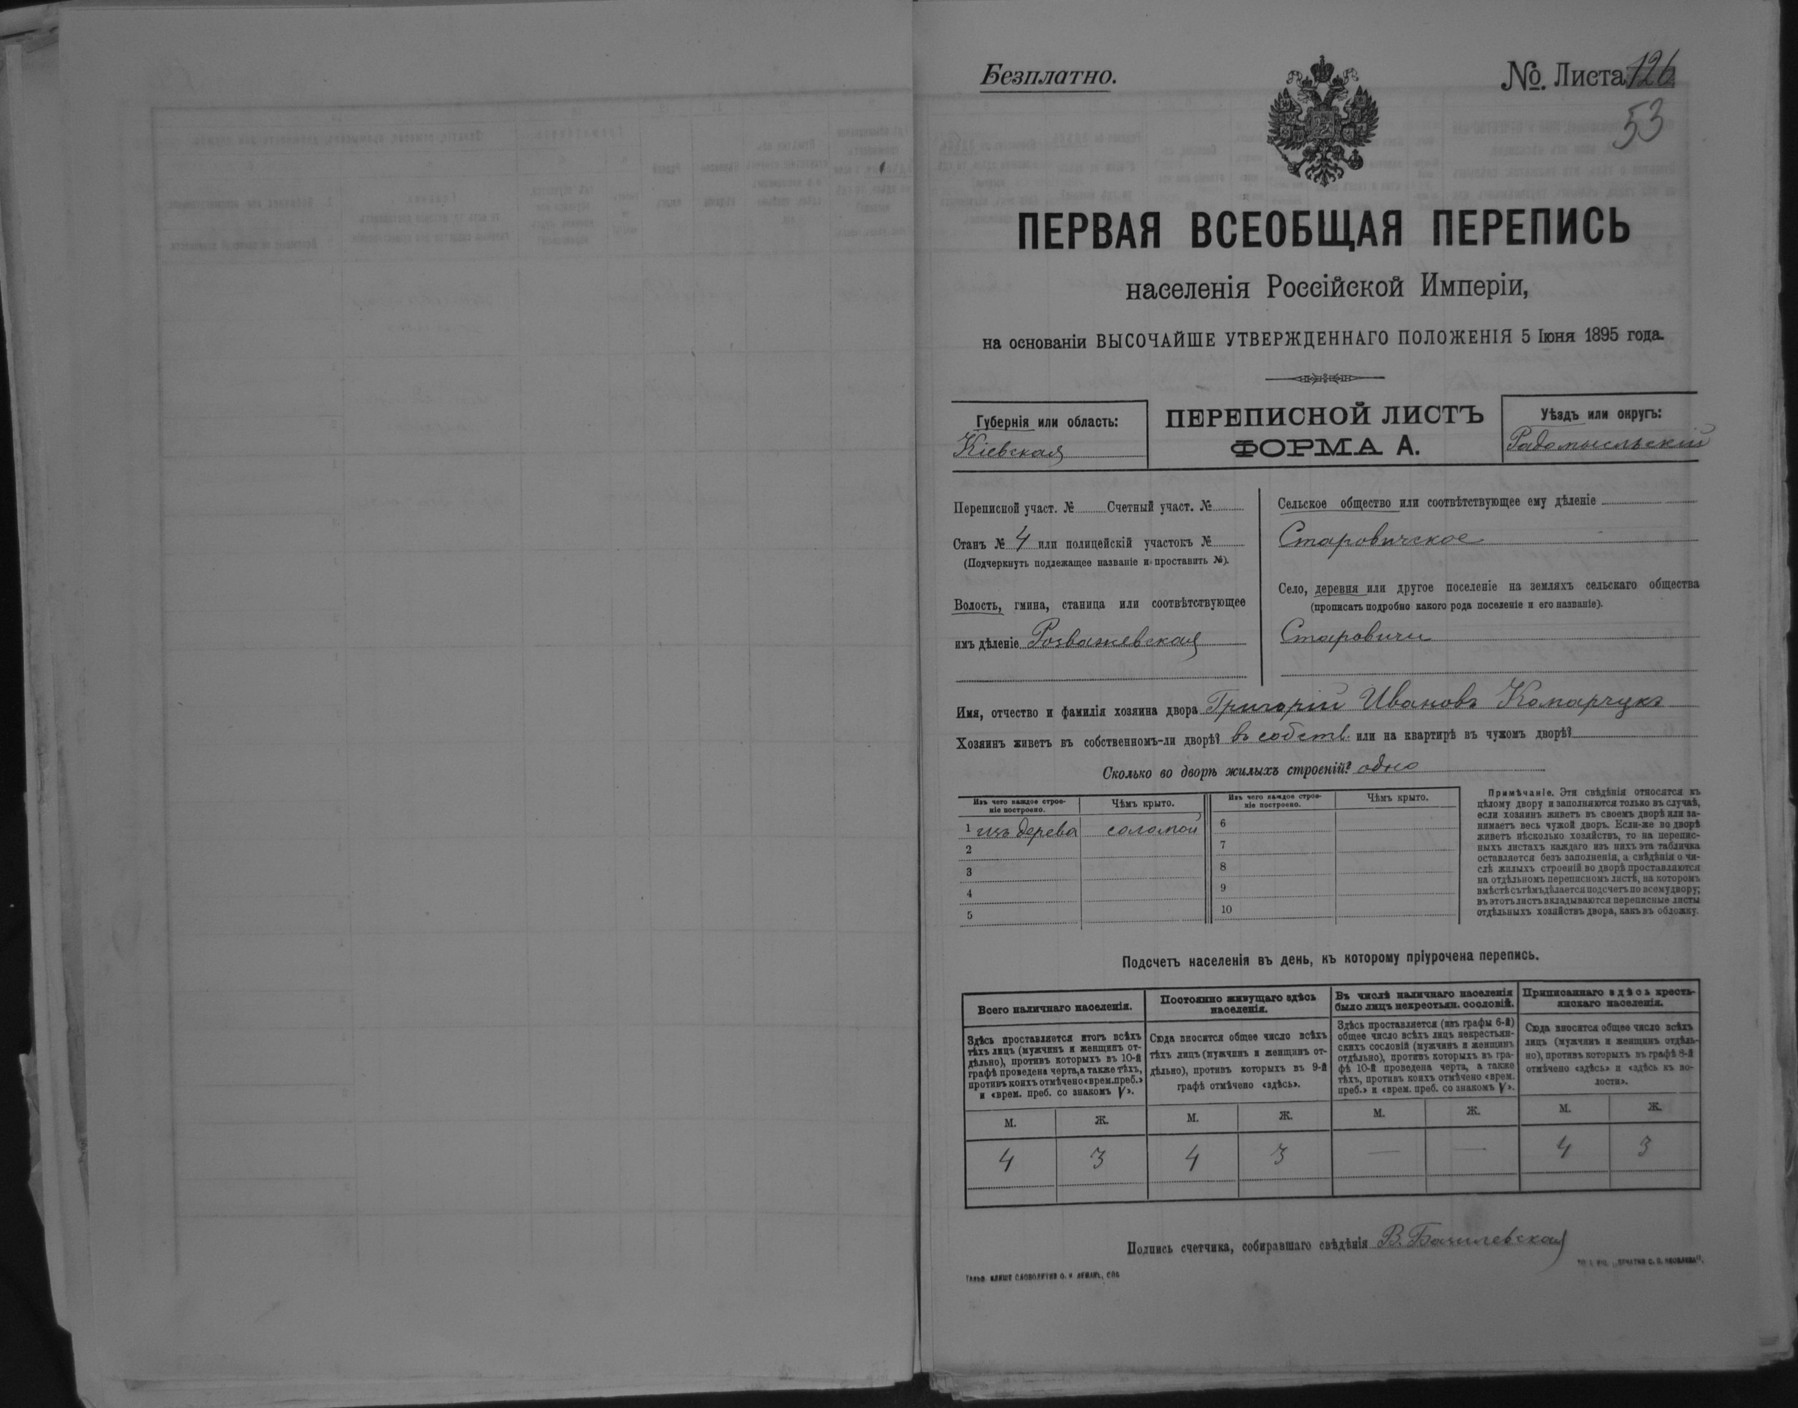 Безплатно.
№. Листа 126
53
ПЕРВАЯ ВСЕОБЩАЯ ПЕРЕПИСЬ
населенія Россійской Имперіи,
на основаніи ВЫСОЧАЙШЕ УТВЕРЖДЕННАГО ПОЛОЖЕНІЯ 5 Іюня 1895 года.
Губернія или область:
Кіевская
ПЕРЕПИСНОЙ ЛИСТЪ
ФОРМА А.
Уѣздъ или округъ:
Радомысльскій
Переписной участ. № Счетный участ. №
Станъ № 4 или полицейскій участокъ №
(Подчеркнуть подлежащее названіе и проставить №).
Волость, гмина, станица или соотвѣтствующее
имъ дѣленіе Розважевская
Сельское общество или соотвѣтствующее ему дѣленіе
Старовичское
Село, деревня или другое поселеніе на земляхъ сельскаго общества
(прописать подробно какого рода поселеніе и его названіе).
Старовичи
Имя, отчество и фамилія хозяина двора Григорій Ивановъ Комарчукъ
Хозяинъ живетъ въ собственномъ-ли дворѣ? въ собств. или на квартирѣ въ чужомъ дворѣ?
Сколько во дворѣ жилыхъ строеній? одно
Изъ чего каждое строе-
ніе построено.
Чѣмъ крыто.
Изъ чего каждое строе-
ніе построено.
Чѣмъ крыто.
1 изъ дерева соломой 6
2 7
3 8
4 9
5 10
Примѣчаніе. Эти свѣдѣнія относятся къ
цѣлому двору и заполняются только въ случаѣ,
если хозяинъ живетъ въ своемъ дворѣ или за-
нимаетъ весь чужой дворъ. Если-же во дворѣ
живетъ нѣсколько хозяйствъ, то на перепис-
ныхъ листахъ каждаго изъ нихъ эта табличка
оставляется безъ заполненія, а свѣдѣнія о чи-
слѣ жилыхъ строеній во дворѣ проставляются
на отдѣльномъ переписномъ листѣ, на которомъ
вмѣстѣ съ тѣмъ дѣлается подсчетъ по всему двору;
въ этотъ листъ вкладываются переписные листы
отдѣльныхъ хозяйствъ двора, какъ въ обложку.
Подсчетъ населенія въ день, къ которому пріурочена перепись.
Всего наличнаго населенія.
Здѣсь проставляется итогъ всѣхъ
тѣхъ лицъ (мужчинъ и женщинъ от-
дѣльно), противъ которыхъ въ 10-й
графѣ проведена черта, а также тѣхъ,
противъ коихъ отмѣчено «врем. преб.»
и «врем. преб. со знакомъ V».
Постоянно живущаго здѣсь
населенія.
Сюда вносится общее число всѣхъ
тѣхъ лицъ (мужчинъ и женщинъ от-
дѣльно), противъ которыхъ въ 9-й
графѣ отмѣчено «здѣсь».
Въ числѣ наличнаго населенія
было лицъ некрестьян. сословій.
Здѣсь проставляется (изъ графы 6-й)
общее число всѣхъ лицъ некрестьян-
скихъ сословій (мужчинъ и женщинъ
отдѣльно), противъ которыхъ въ гра-
фѣ 10-й проведена черта, а также
тѣхъ, противъ коихъ отмѣчено «врем.
преб.» и «врем. преб. со знакомъ V».
Приписаннаго здѣсь кресть-
янскаго населенія.
Сюда вносится общее число всѣхъ
лицъ (мужчинъ и женщинъ отдѣль-
но), противъ которыхъ въ графѣ 8-й
отмѣчено «здѣсь» и «здѣсь къ во-
лости».
М. Ж. М. Ж. М. Ж. М. Ж.
4 3 4 3 — — 4 3
Подпись счетчика, собиравшаго свѣдѣнія В.